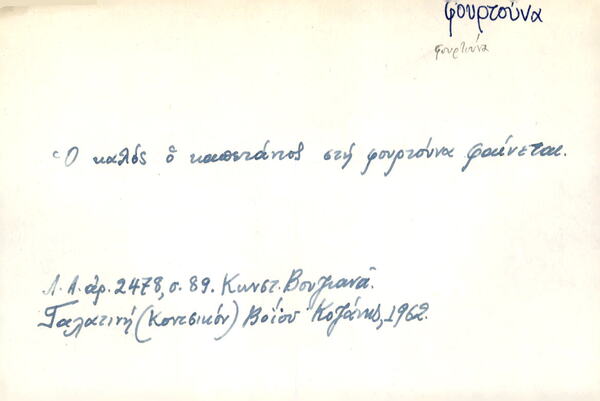 φουρτούνα
φουρτούνα
Ὁ καλός ὁ καπετάνιος στή φουρτούνα φαίνεται.
Λ.Α. ἀρ. 2478, σ. 89. Κωνστ. Βουζιανᾶ.
Γαλατινή (Κοντσικόν) Βοΐου Κοζάνης, 1962.